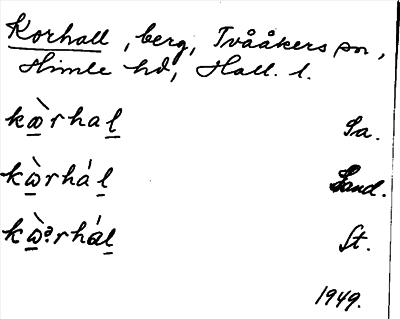 Korhall, berg, Tvååkers sn,
Himle hd, Hall. l.
kæ̀rhal Sa.
kὼrhál Sand.
kὼ?rhál St.
1949.